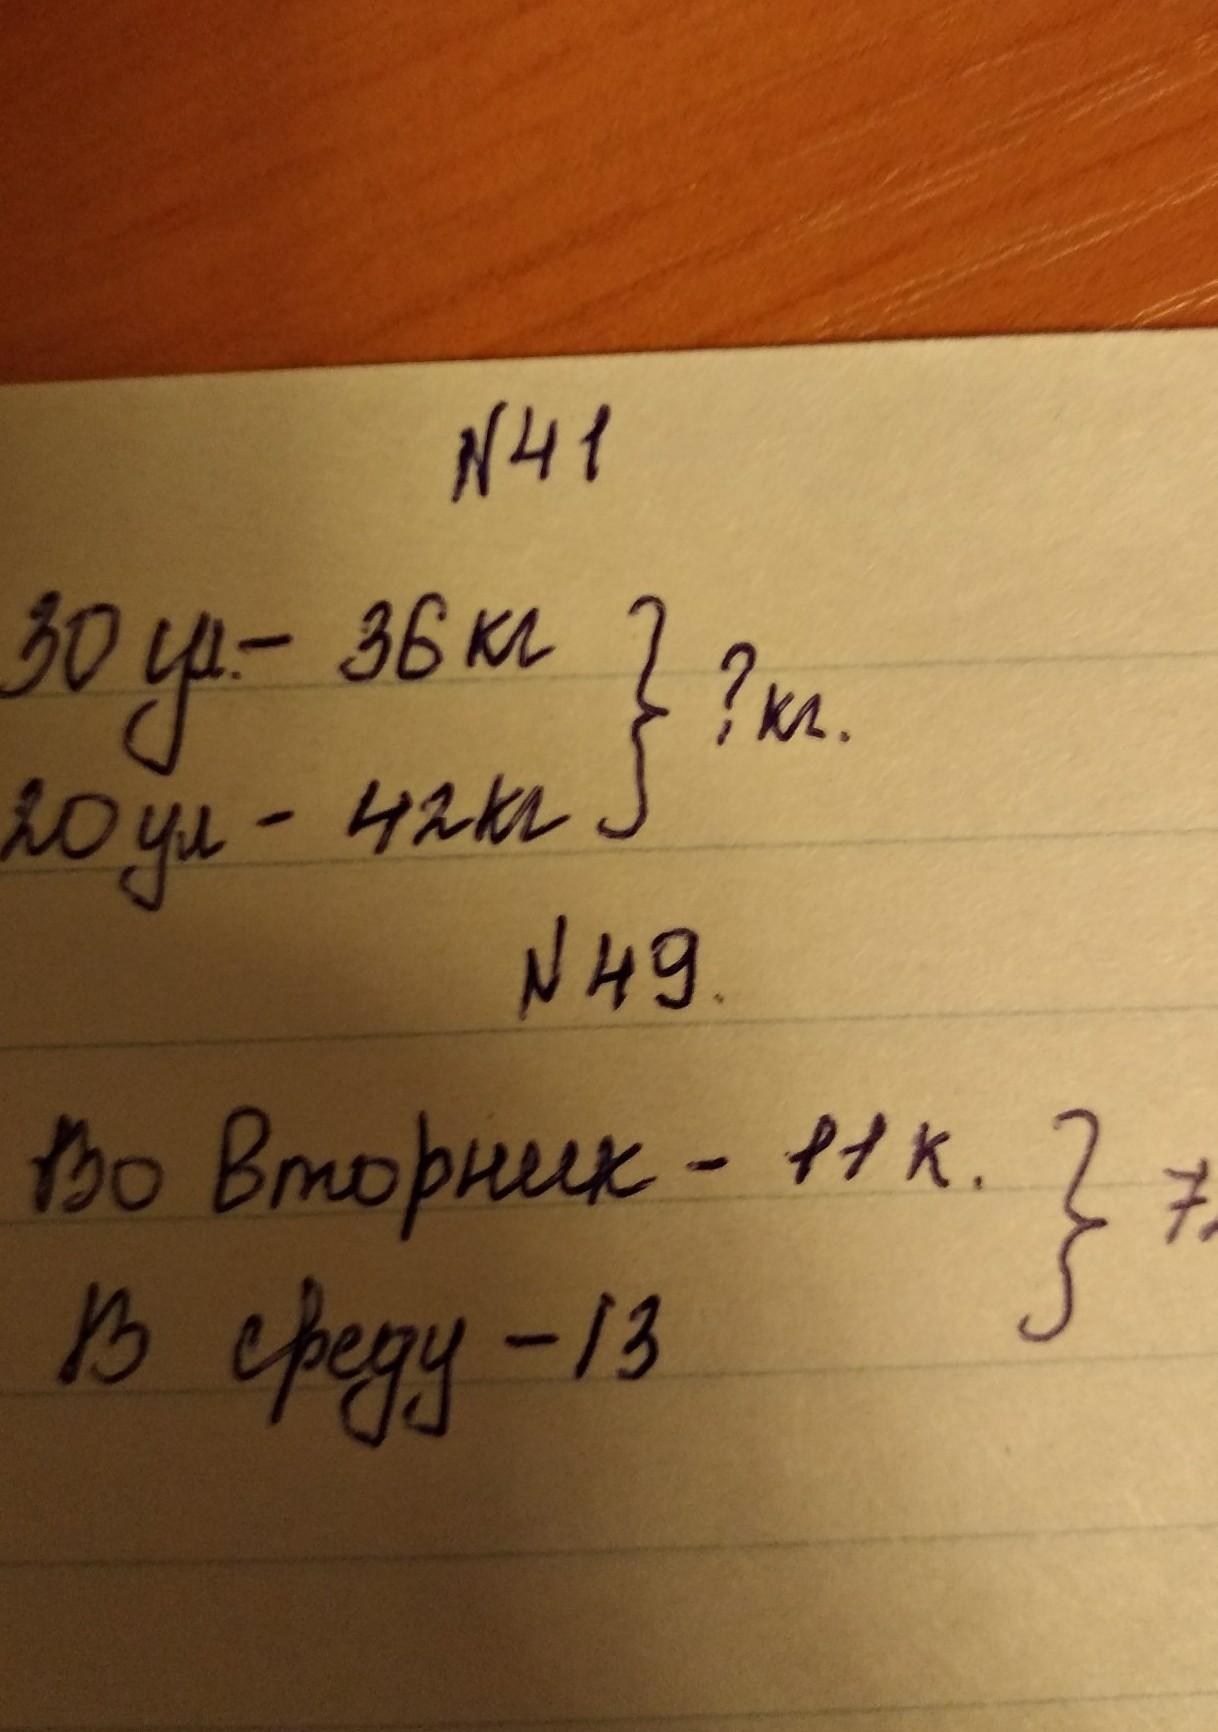 N41
30 ул. - 36 кг
? кг.
20 ул - 42 кг
N 49.
Во Вторник - 11 к.
В среду - 13